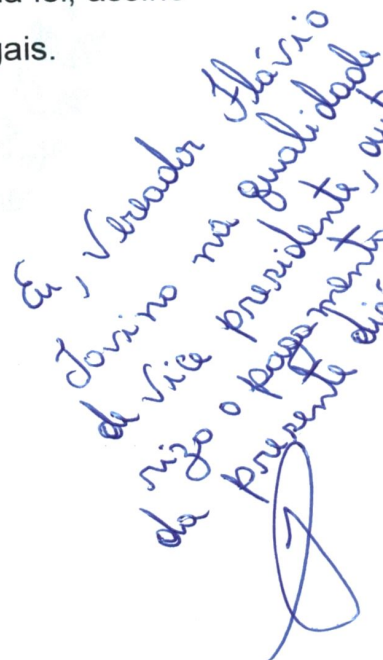 a lei, assino
gais.
Eu, Vereador Flávio
Jovino na qualidade
de vice presidente, aut
rizo o pagamento
da presente diá